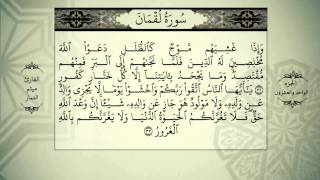 سُورَةُ لُقْمَانَ
وَإِذَا غَشِيَهُم مَّوْجٌ كَالظُّلَلِ دَعَوُا۟ ٱللَّهَ
مُخْلِصِينَ لَهُ ٱلدِّينَ فَلَمَّا نَجَّىٰهُمْ إِلَى ٱلْبَرِّ فَمِنْهُم
مُّقْتَصِدٌ وَمَا يَجْحَدُ بِـَٔايَٰتِنَآ إِلَّا كُلُّ خَتَّارٍ كَفُورٍ
۝٣٢ يَٰٓأَيُّهَا ٱلنَّاسُ ٱتَّقُوا۟ رَبَّكُمْ وَٱخْشَوْا۟ يَوْمًا لَّا يَجْزِى وَالِدٌ
عَن وَلَدِهِۦ وَلَا مَوْلُودٌ هُوَ جَازٍ عَن وَالِدِهِۦ شَيْـًٔا إِنَّ وَعْدَ ٱللَّهِ
حَقٌّ فَلَا تَغُرَّنَّكُمُ ٱلْحَيَوٰةُ ٱلدُّنْيَا وَلَا يَغُرَّنَّكُم بِٱللَّهِ
ٱلْغَرُورُ ۝٣٣
الجزء
الواحد والعشرون
القارئ
ميثم
التمار